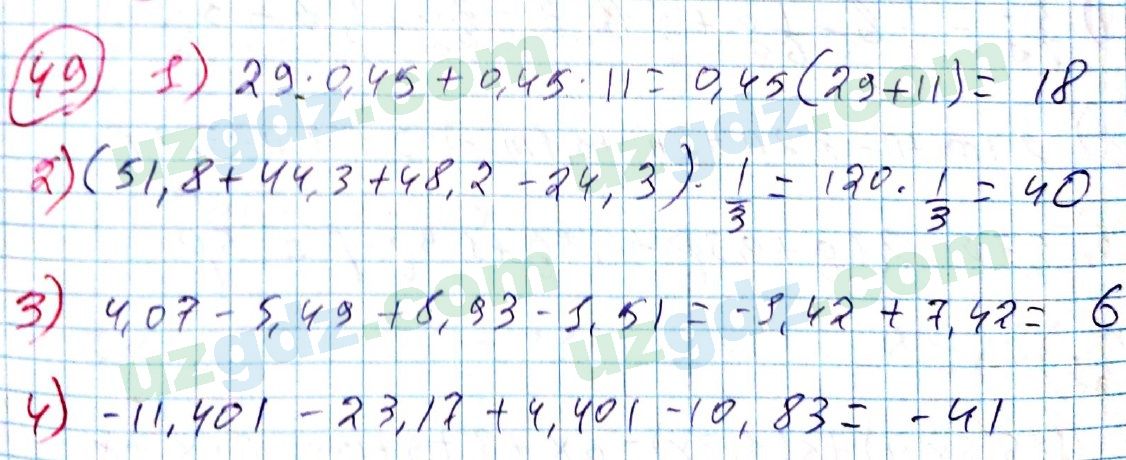 49 1) 29·0,45+0,45·11=0,45(29+11)=18
2) (51,8+44,3+48,2-24,3)·1/3=120·1/3=40
3) 4,07-5,49+8,93-1,51=-1,42+7,42=6
4) -11,401-23,17+4,401-10,83=-41
uzgdz.com uzgdz.com
uzgdz.com uzgdz.com